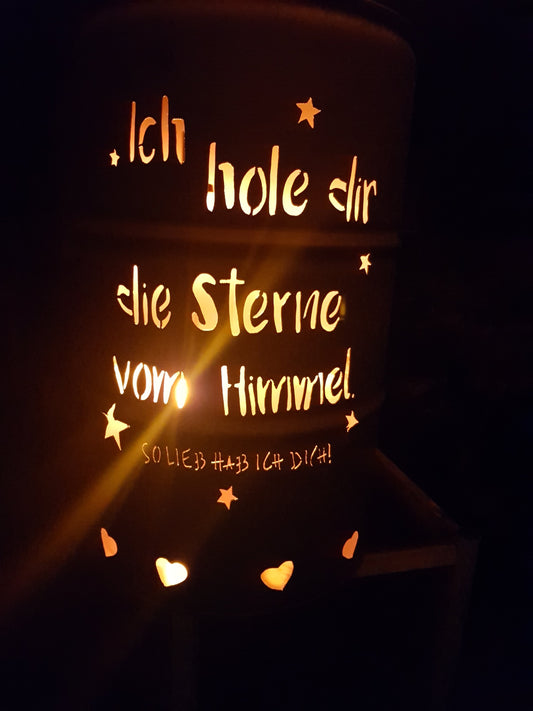 Ich
hole dir
die Sterne
vom Himmel.
SO LIEB HAB ICH DICH!